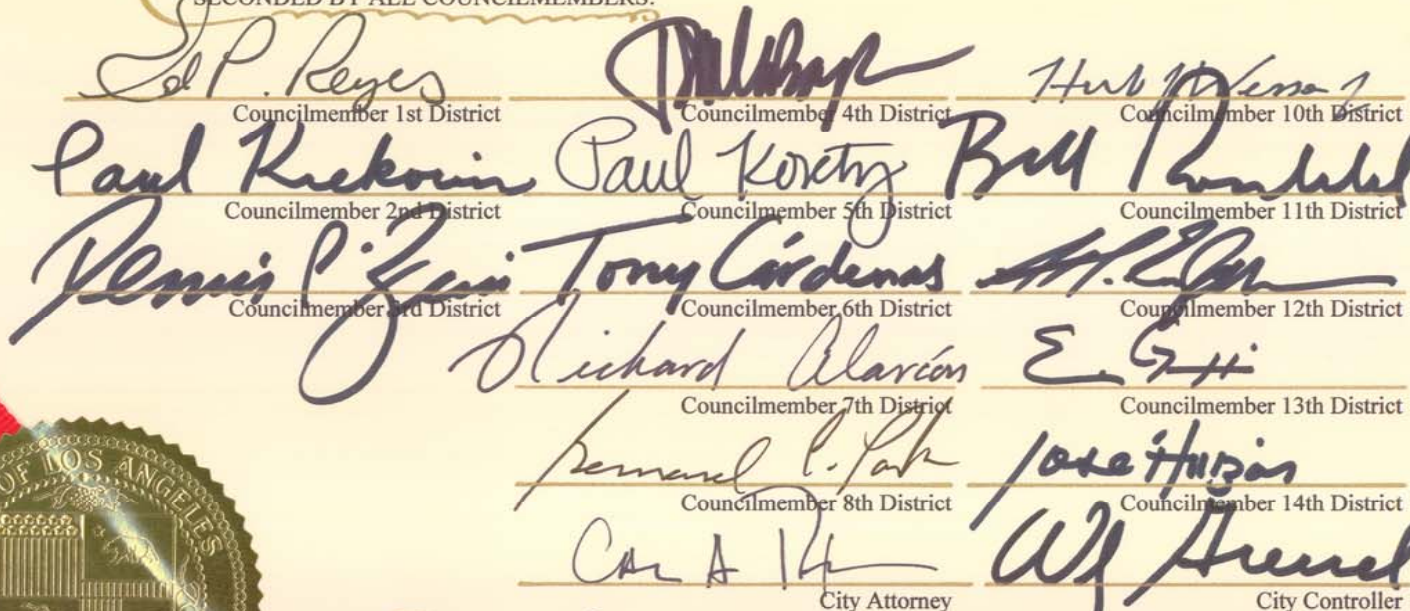 SECONDED BY ALL COUNCILMEMBERS:
Ed P. Reyes
Councilmember 1st District
Paul Krekorian
Councilmember 2nd District
Dennis P. Zine
Councilmember 3rd District
Councilmember 4th District
Paul Koretz
Councilmember 5th District
Tony Cárdenas
Councilmember 6th District
Richard Alarcón
Councilmember 7th District
Bernard C. Parks
Councilmember 8th District
City Attorney
Herb J Wesson
Councilmember 10th District
Bill Rosendahl
Councilmember 11th District
Councilmember 12th District
Councilmember 13th District
Jose Huizar
Councilmember 14th District
City Controller
OF LOS ANGELES